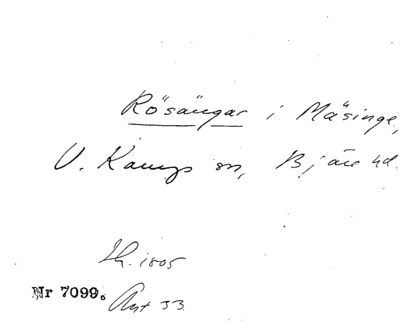 Rösängar i Mäsinge,
V. Karups sn, Bjäre hd.
Lh. 1805
Nr 7099. Akt 33